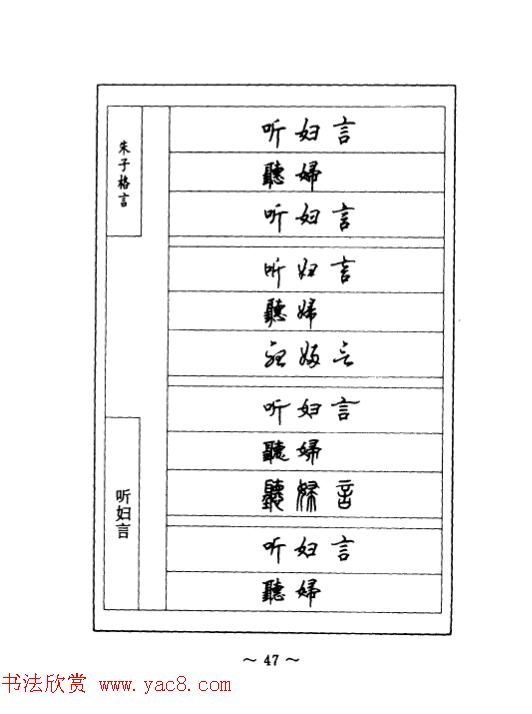 朱子格言
听妇言
听妇言
聽婦
听妇言
听妇言
聽婦
聽婦言
听妇言
聽婦
聽婦言
听妇言
聽婦
～ 47 ～
书法欣赏 www.yac8.com